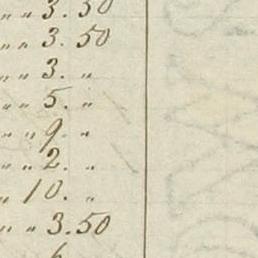 " " 3.50
" " 3.50
" " 3. "
" " 5. "
" " 9. "
" " 2. "
" 10. "
" " 3.50